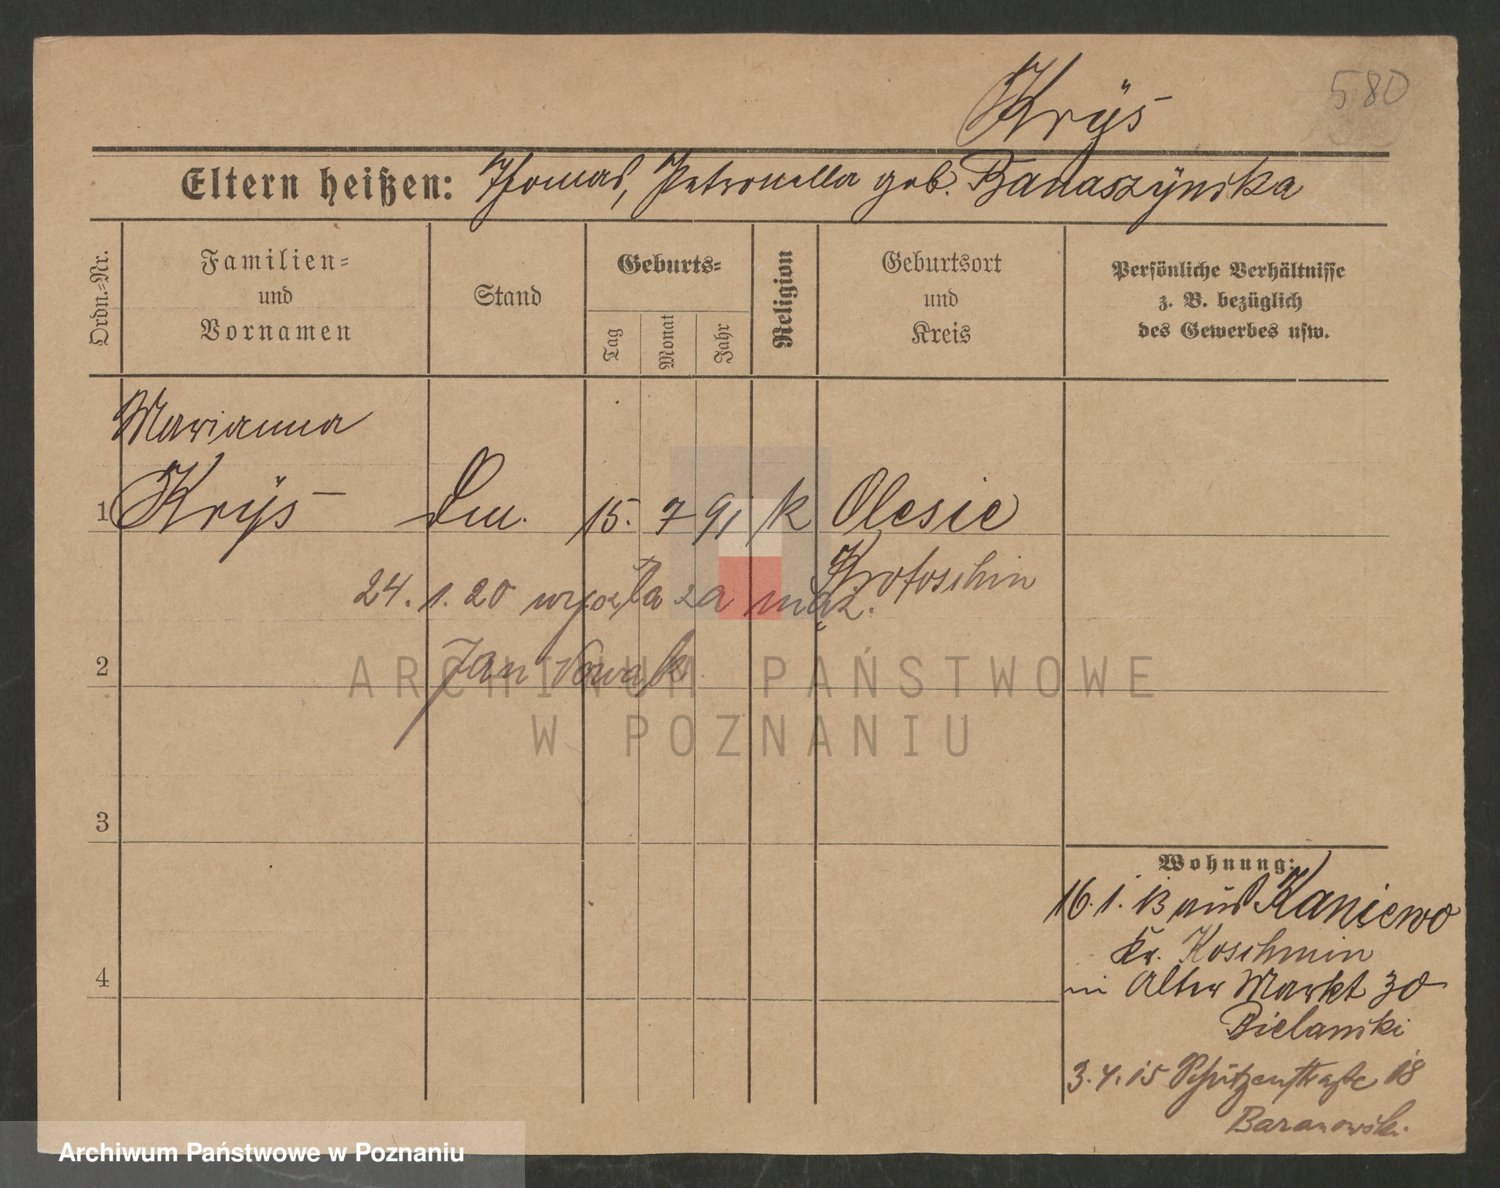 Krÿs
580
Eltern heißen: Thomas, Petronella geb. Banaszÿnska
Ordn.-Nr.
Familien- und Vornamen
Stand
Geburts-
Tag
Monat
Jahr
Religion
Geburtsort und Kreis
Persönliche Verhältnisse
z. B. bezüglich
des Gewerbes usw.
Marianna
1 Krÿs Dm. 15. 7 91 k Olesie
Krotoschin
24. 1. 20 wyszła za mąż.
Jan Nowak
2
3
4
Wohnung:
16. 1. 13 aus Kaniewo
Kr. Koschmin
in Alter Markt 30
Bielanski
3. 4. 15 Schützenstraße 18
Baranowski.
ARCHIWUM PAŃSTWOWE
W POZNANIU
Archiwum Państwowe w Poznaniu